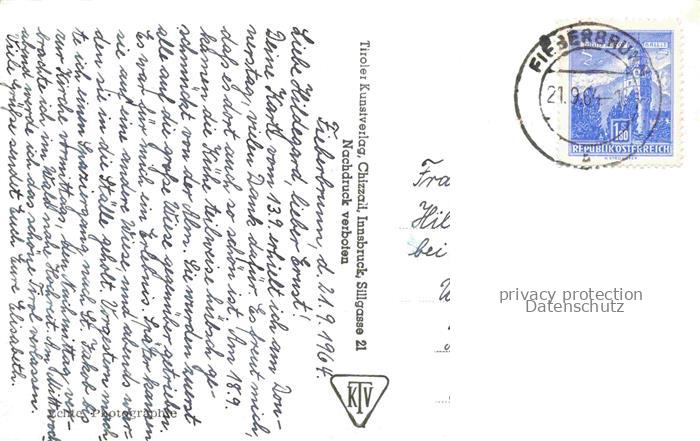 Fieberbrunn, d. 21.9.1964.
Liebe Hildegard, lieber Ernst!
Deine Karte vom 13.9. erhielt ich am Don-
nerstag, vielen Dank dafür. Es freut mich,
daß es dort auch so schön ist. Am 18.9.
kamen die Kühe teilweise hübsch ge-
schmückt von der Alm. Sie wurden zuerst
alle auf die große Wiese gegenüber getrieben.
Es war für mich ein Erlebnis. Später kamen
sie auf eine andere Wiese, und abends wur-
den sie in die Ställe geholt. Vorgestern mach-
te ich einen Spaziergang nach St. Jakob bis
zur Kirche vormittags, den Nachmittag ver-
brachte ich im Wald nahe Hochzeit. Am Mittwoch
abend werde ich das schöne Tirol verlassen.
Viele Grüße sendet Euch Eure Elisabeth.
Echte Photographie
Tiroler Kunstverlag, Chizzali, Innsbruck, Sillgasse 21
Nachdruck verboten
KTV
FIEBERBRUNN
21.9.64
1.80
REPUBLIK ÖSTERREICH
Fra
Hil
bei
privacy protection
Datenschutz